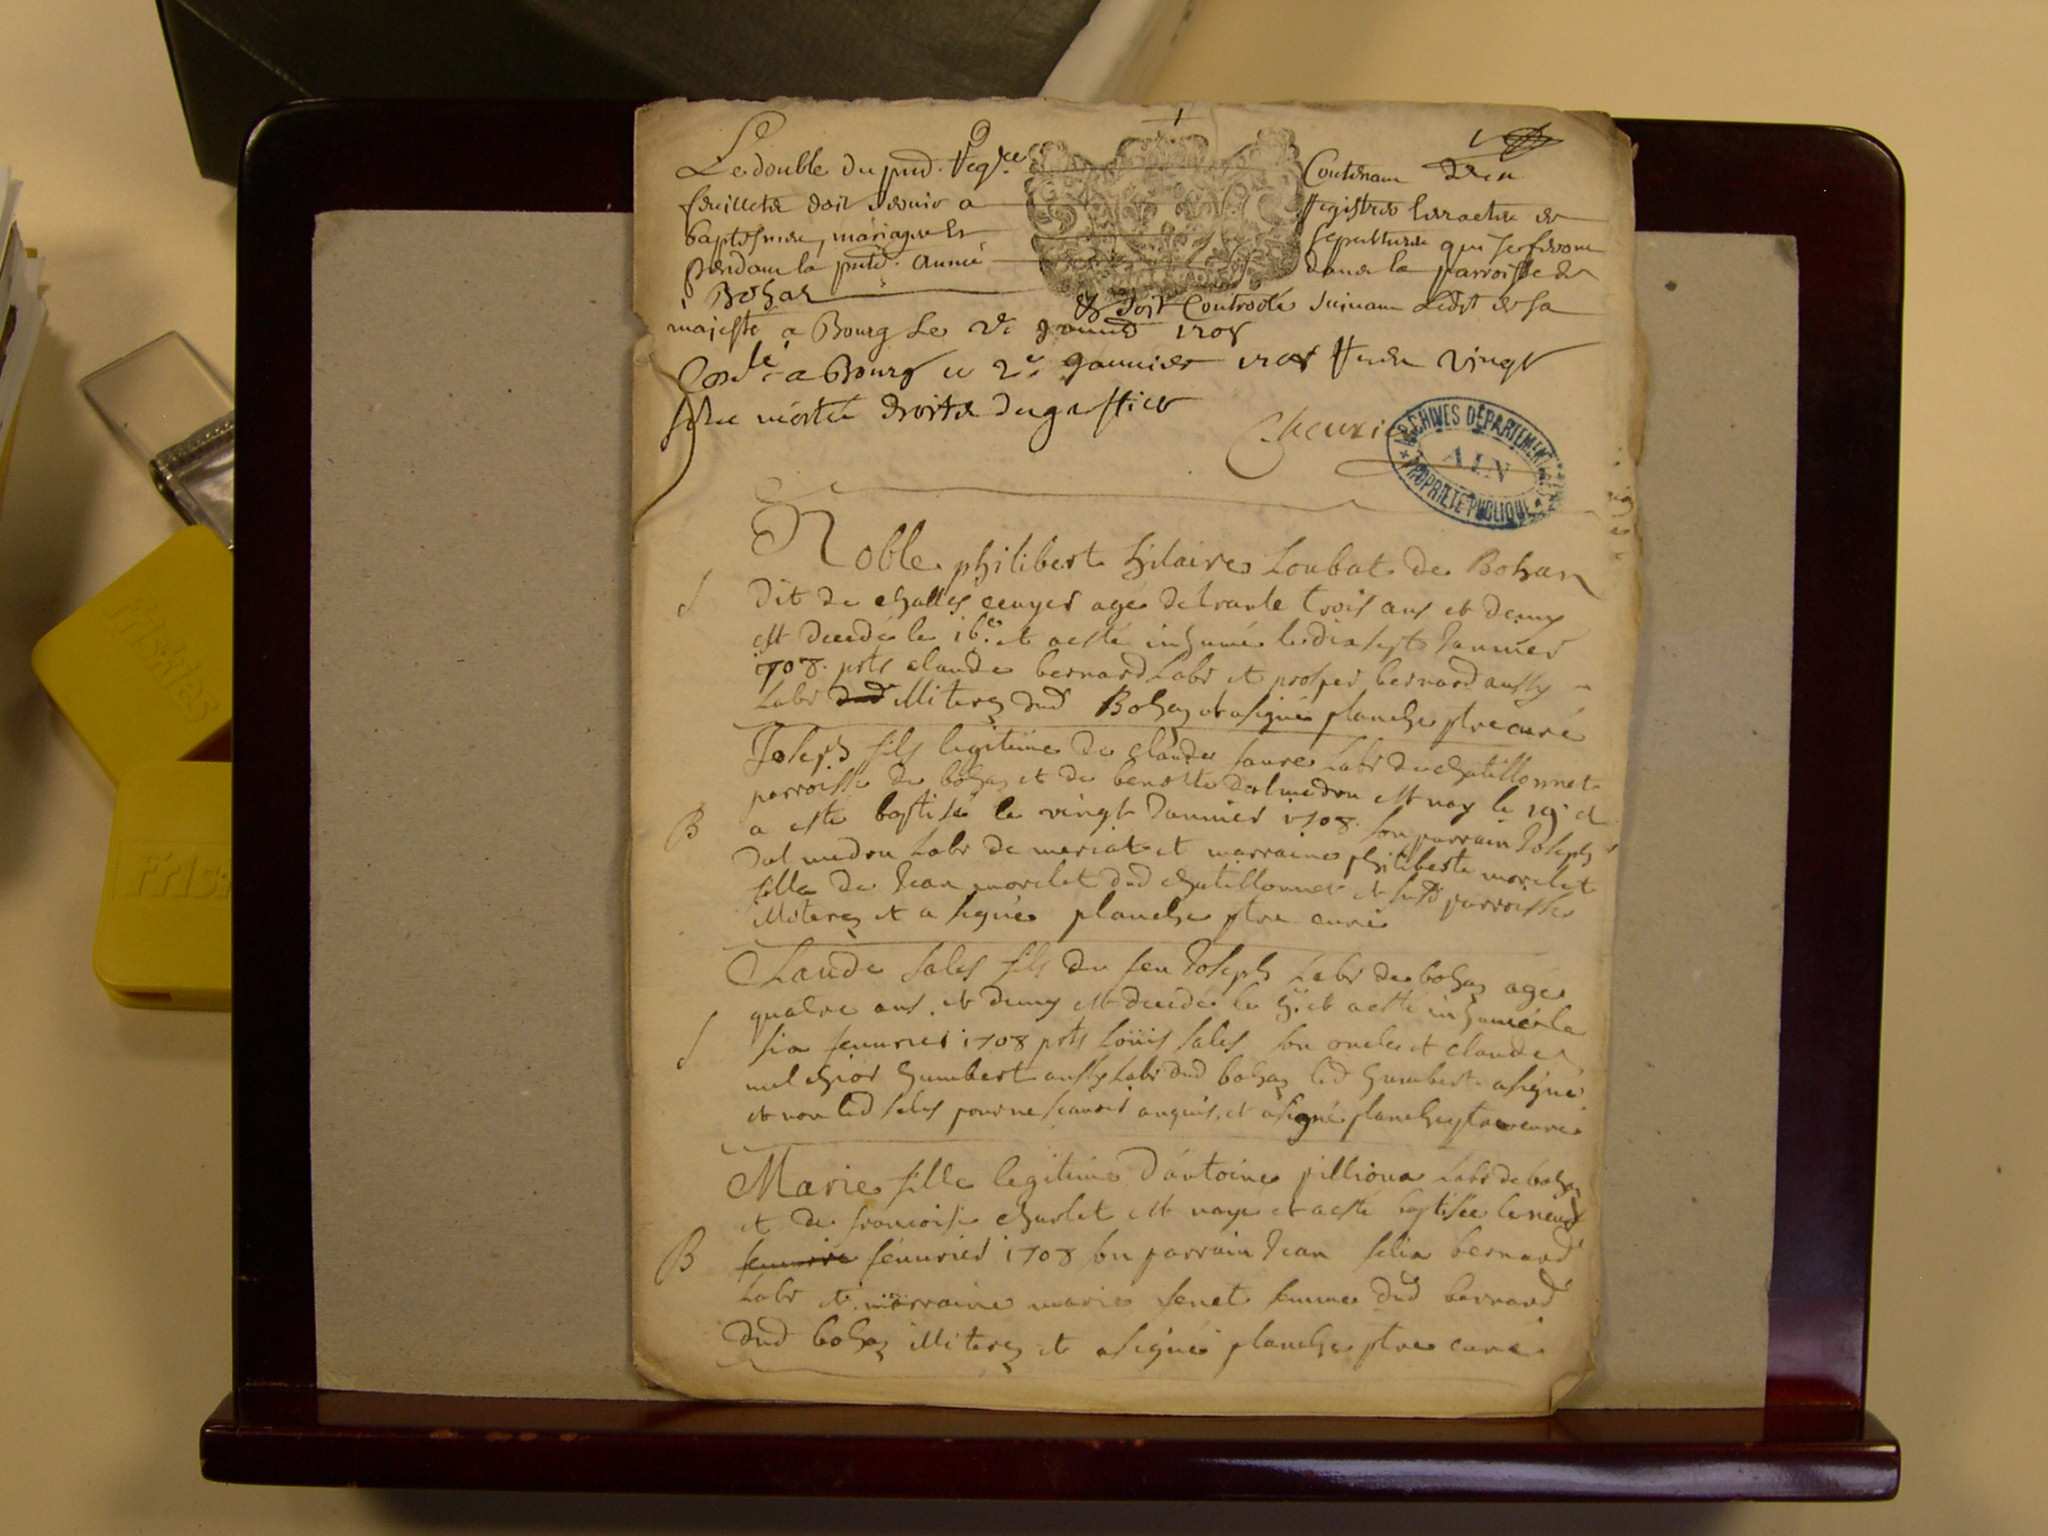 1
Le double du pnt. Regre Contenant dix
feuillets doit servir a Registrer les actes de
baptesmes, mariages et sepultures qui se feront
pendant la pnte. année dans la parroisse de
Bohas et soit Controolé suivant Ledit de sa
majesté a Bourg Le 2e janvier 1708
Conlé a Bourg ce 2e Janvier 1708 Receu vingt
droits du greffier
Cheurie
ARCHIVES DÉPARTEMENTALES
AIN
PROPRIÉTÉ PUBLIQUE
Noble philibert hilaire Loubat de Bohan
S dit de challes ecuyer agé de trante trois ans et demy
est decedé le 16e et a esté inhumé le dix sept Januier
1708. pnts claude bernard Labr et prosper bernard aussy
Labr dud illiterez dud Bohaz et a signé planche ptre curé
Joseph fils legitime de claude faure Labr de chatillonnet
parroisse de bohaz et de benoitte dalmedru est nay le 19e et
B a esté baptisé le vingt Januier 1708. son parrain Joseph
dalmedru Labr de meriat et marraine philiberte morelet
fille de Jean morelet dud chatillonnet et susd parroisse
illiterez et a signé planche ptre curé
Claude sales fils de feu Joseph Labr de bohaz agé
quatre ans et demy est decedé le 5e et a esté inhumé le
S six feuurier 1708 pnts Loüis sales son oncle et claude
melchior humbert aussy Labr dud bohaz led humbert a signé
et non led sales pour ne scauoir enquis, et a signé planche ptre curé
Marie fille legitime d'antoine pillion Labr de bohaz
et de francoise charlet est naye et a esté baptisée le neuf
B feuurier féuurier 1708 son parrain Jean felix bernard
Labr et marraine marie fenet femme dud bernard
dud bohaz illiterez et a signé planche ptre curé
Friskias
Frisk